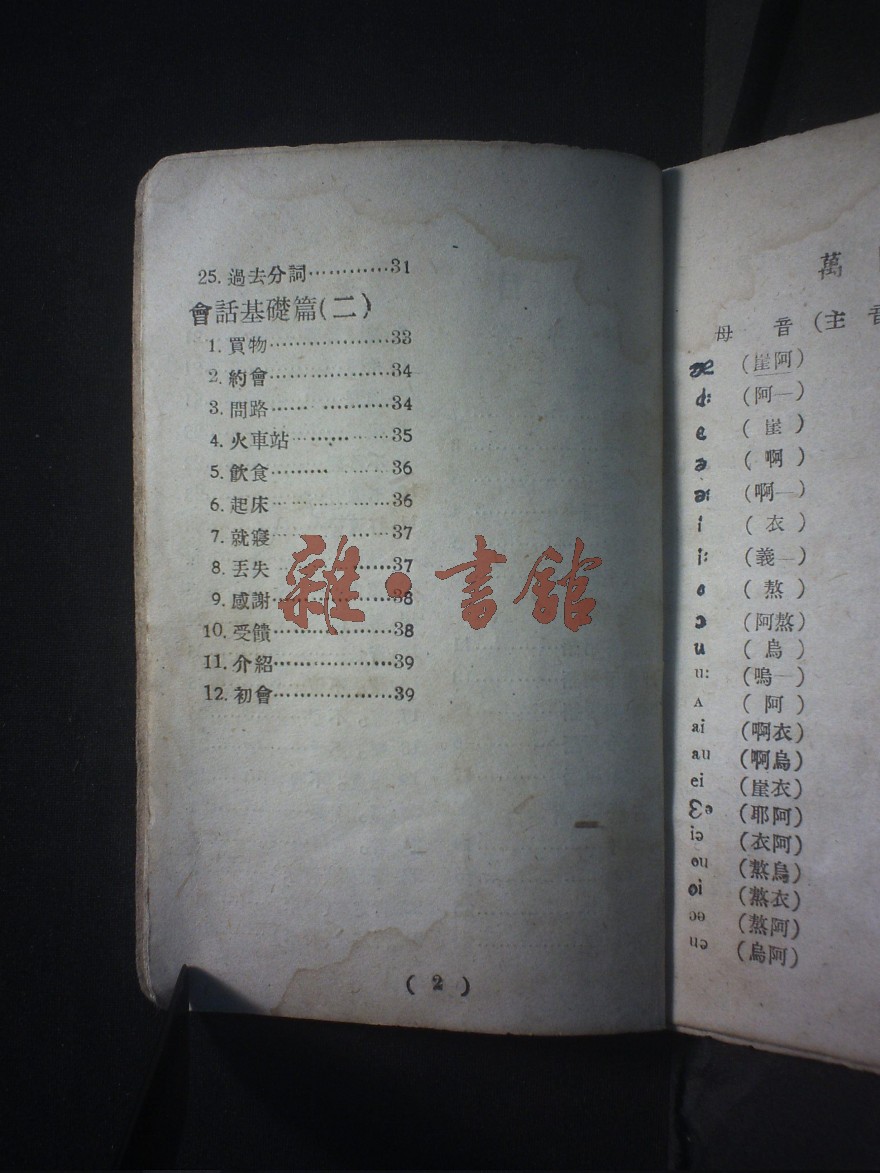 25. 過去分詞…………31
會話基礎篇(二)
1. 買物………………33
2. 約會………………34
3. 問路………………34
4. 火車站……………35
5. 飲食………………36
6. 起床………………36
7. 就寢………………37
8. 丟失………………37
9. 感謝………………38
10. 受饋………………38
11. 介紹………………39
12. 初會………………39
( 2 )
雜·書館
萬
母 音 (主 音
æ (崖阿)
ɑ: (阿—)
e ( 崖 )
ə ( 啊 )
ə: (啊—)
i ( 衣 )
i: (義—)
o ( 熬 )
ɔ (阿熬)
u ( 烏 )
u: (嗚—)
ʌ ( 阿 )
ai (啊衣)
au (啊烏)
ei (崖衣)
ɛə (耶阿)
iə (衣阿)
ou (熬烏)
oi (熬衣)
ɔə (熬阿)
uə (烏阿)